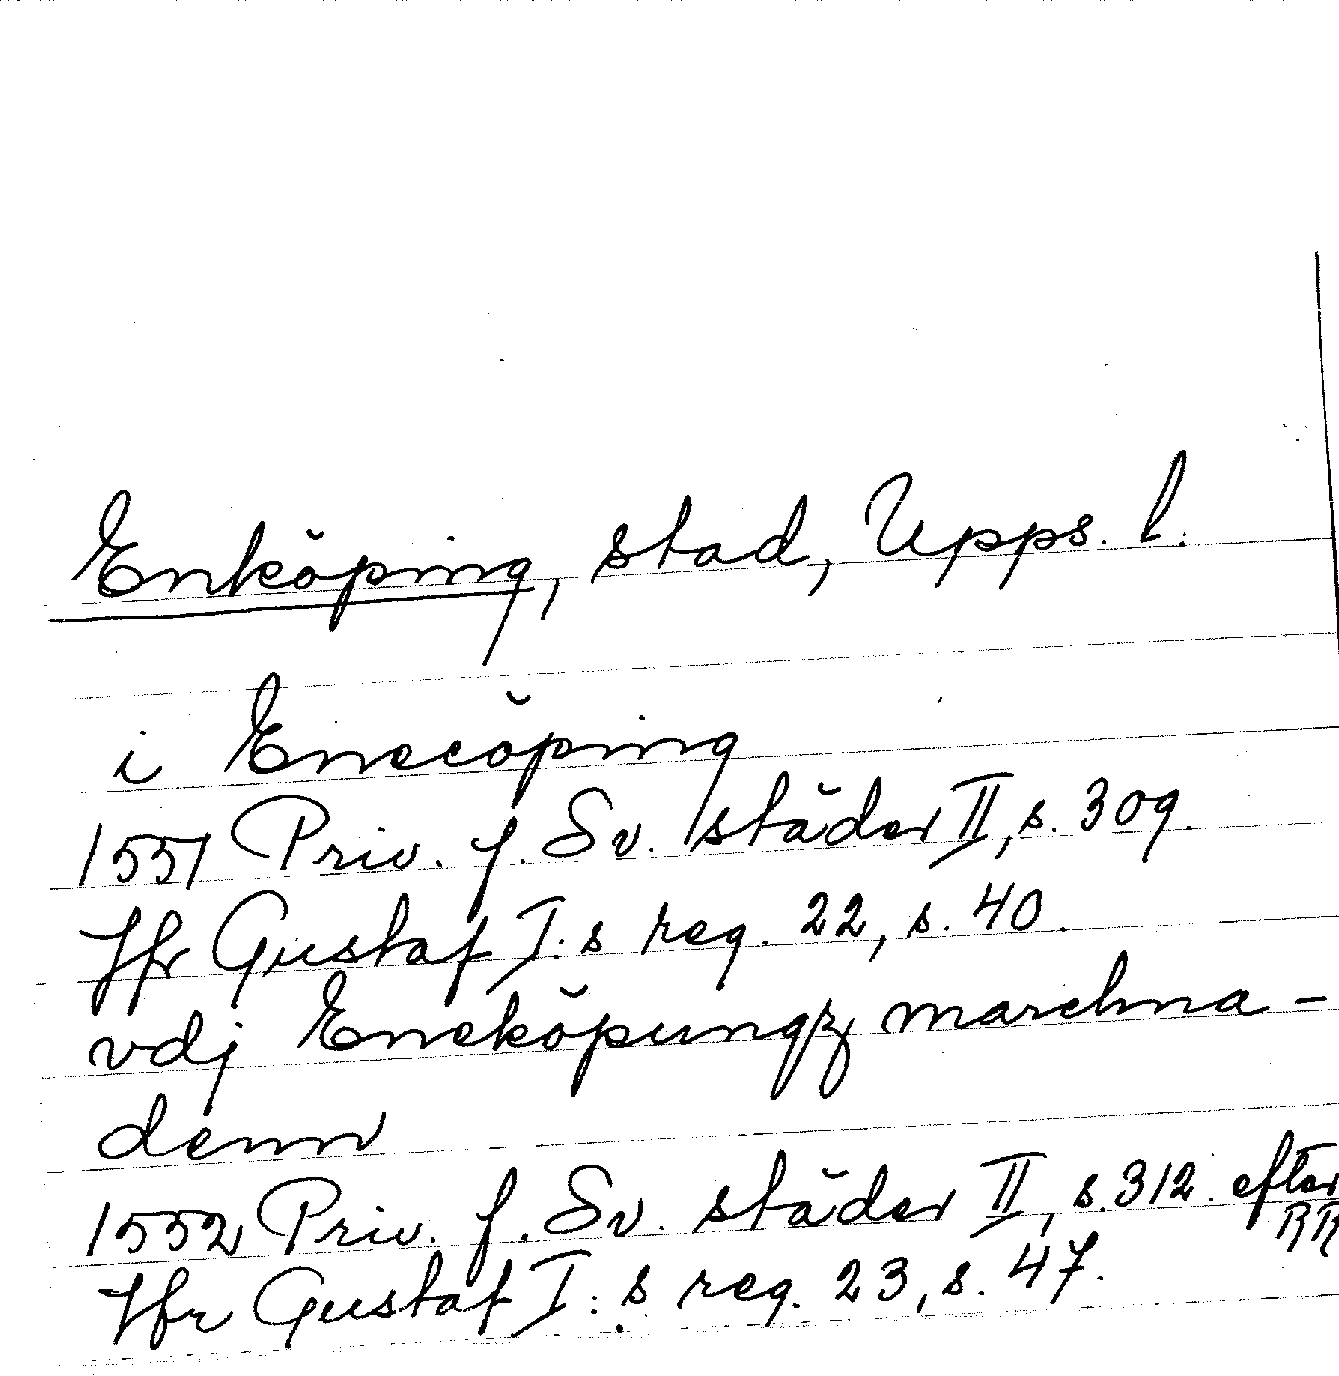 Enköping, stad, Upps. l.
i Enecöping
1551 Priv. f. Sv. städer II, s. 309.
Jfr Gustaf I:s reg. 22, s. 40.
vdj Eneköpungz marchna-
denn
1552 Priv. f. Sv. städer II, s. 312. efter
RR
Jfr Gustaf I:s reg. 23, s. 47.